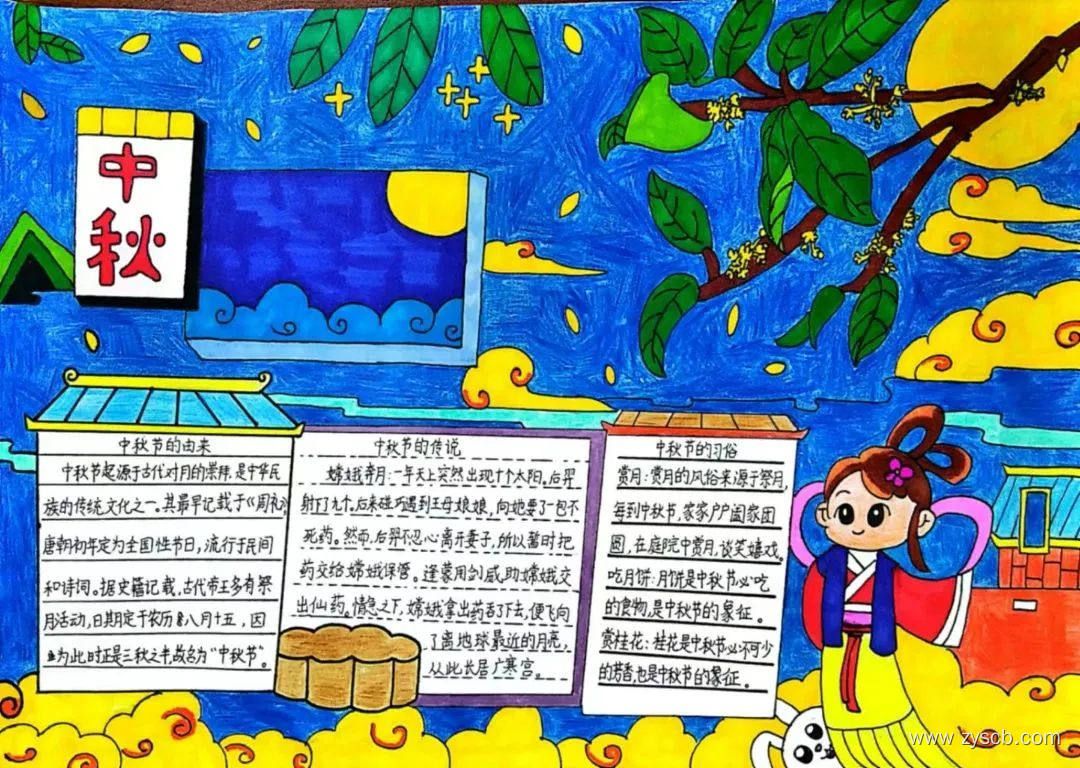 中
秋
中秋节的由来
中秋节起源于古代对月的崇拜,是中华民
族的传统文化之一。其最早记载于《周礼》
唐朝初年定为全国性节日,流行于民间
和诗词。据史籍记载,古代帝王多有祭
月活动,日期定于农历八月十五,因
为此时正是三秋之半,故名为“中秋节”。
中秋节的传说
嫦娥奔月:一年天上突然出现十个太阳。后羿
射了九个,后来碰巧遇到王母娘娘,向她要了一包不
死药。然而,后羿不忍心离开妻子,所以暂时把
药交给嫦娥保管。逢蒙用剑威助嫦娥交
出仙药。情急之下,嫦娥拿出药吞了下去,便飞向
了离地球最近的月亮,
从此长居广寒宫。
中秋节的习俗
赏月:赏月的风俗来源于祭月,
每到中秋节,家家户户阖家团
圆,在庭院中赏月,谈笑嬉戏。
吃月饼:月饼是中秋节必吃
的食物,是中秋节的象征。
赏桂花:桂花是中秋节必不可少
的芳香,也是中秋节的象征。
www.zyscb.com